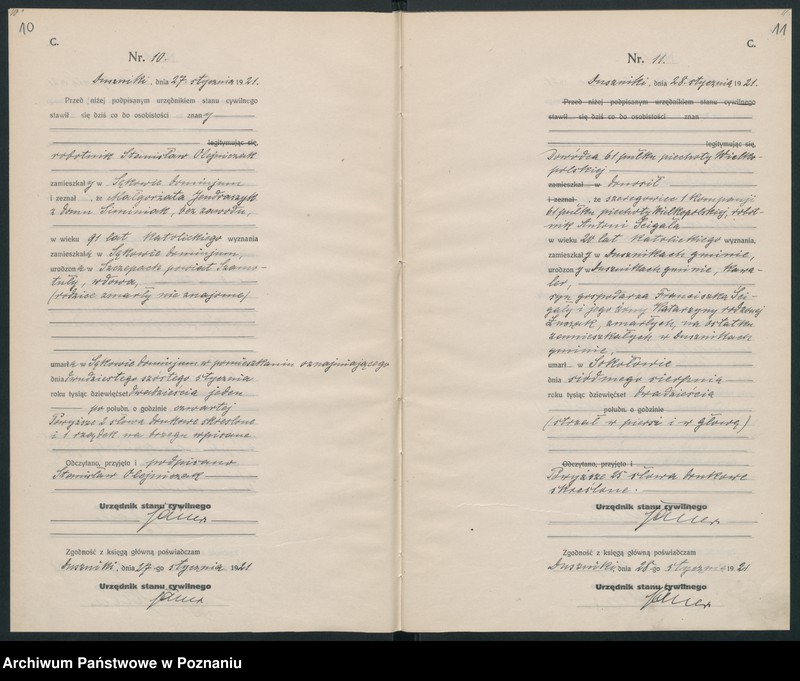 10
C.
Nr. 10.
Duszniki, dnia 27. stycznia 1921.
Przed niżej podpisanym urzędnikiem stanu cywilnego
stawił się dziś co do osobistości znany
legitymując się,
robotnik Stanisław Olejniczak
zamieszkały w Sękowie dominjum
i zeznał, że Małgorzata Jendraszyk
z domu Siminiak, bez zawodu,
w wieku 91 lat katolickiego wyznania
zamieszkała w Sękowie dominjum,
urodzona w Szczepach powiat Szamo-
tuły, wdowa,
(rodzice zmarły nie znajome)
umarła w Sękowie dominjum w pomieszkaniu oznajmiającego
dnia dwudziestego szóstego stycznia
roku tysiąc dziewięćset dwadzieścia jeden
po połudn. o godzinie czwartej
Powyższe 2 słowa drukowe skreślone
i 1 rządek na brzegu wpisano
Odczytano, przyjęto i podpisano
Stanisław Olejniczak
Urzędnik stanu cywilnego
Zgodność z księgą główną poświadczam
Duszniki, dnia 27-go stycznia 1921
Urzędnik stanu cywilnego
11
C.
Nr. 11.
Duszniki, dnia 28. stycznia 1921.
Przed niżej podpisanym urzędnikiem stanu cywilnego
stawił się dziś co do osobistości znan
legitymując się,
Dowódca 61 pułku piechoty Wielko-
polskiej
zamieszkał w donosił
i zeznał, że szeregowiec 1 kompanji
61 pułku piechoty Wielkopolskiej, robot-
nik Antoni Ścigała
w wieku 20 lat katolickiego wyznania,
zamieszkały w Dusznikach gminie,
urodzony w Dusznikach gminie, kawa-
ler,
syn gospodarza Franciszka Ści-
gały i jego żony Katarzyny rodzonej
zmarłych, na ostatku
zamieszkałych w Dusznikach
gminie,
umarł w Sokołowie
dnia siódmego sierpnia
roku tysiąc dziewięćset dwadzieścia
połudn. o godzinie
(strzał w piersi i w głowę)
Odczytano, przyjęto i
Powyższe 25 słowa drukowe
skreślone.
Urzędnik stanu cywilnego
Zgodność z księgą główną poświadczam
Duszniki, dnia 28-go stycznia 1921
Urzędnik stanu cywilnego
Archiwum Państwowe w Poznaniu